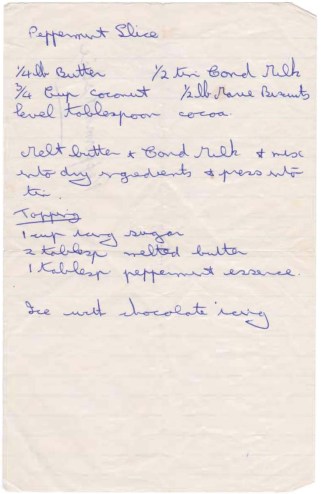 Peppermint Slice
1/4 lb Butter 1/2 tin Cond Milk
3/4 Cup coconut 1/2 lb Marie Biscuits
level tablespoon cocoa.
Melt butter & Cond Milk & mix
into dry ingredients & press into
tin.
Topping
1 cup icing sugar
2 tablesp melted butter
1 tablesp peppermint essence.
Ice with chocolate icing